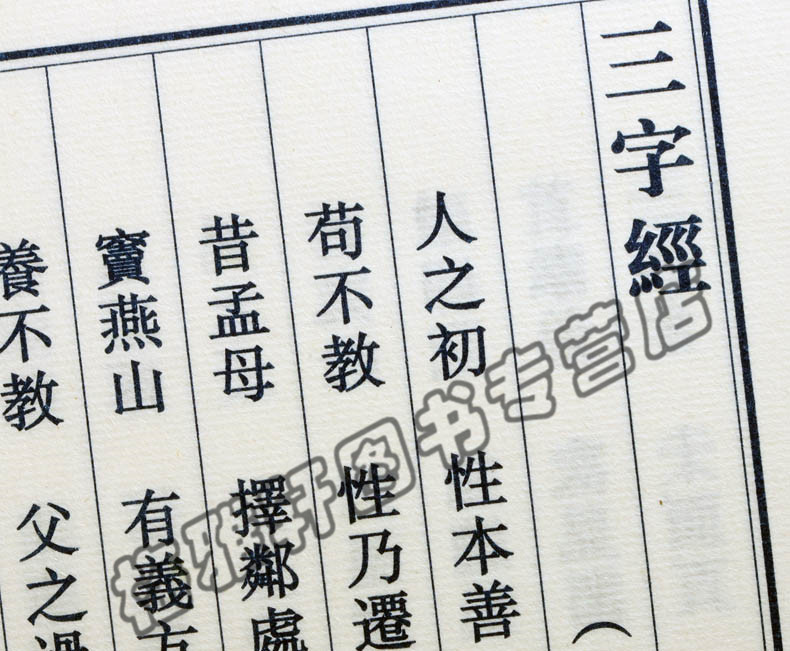 三字經
人之初 性本善
苟不教 性乃遷
昔孟母 擇鄰處
竇燕山 有義方
養不教 父之過
雅軒图书专营店